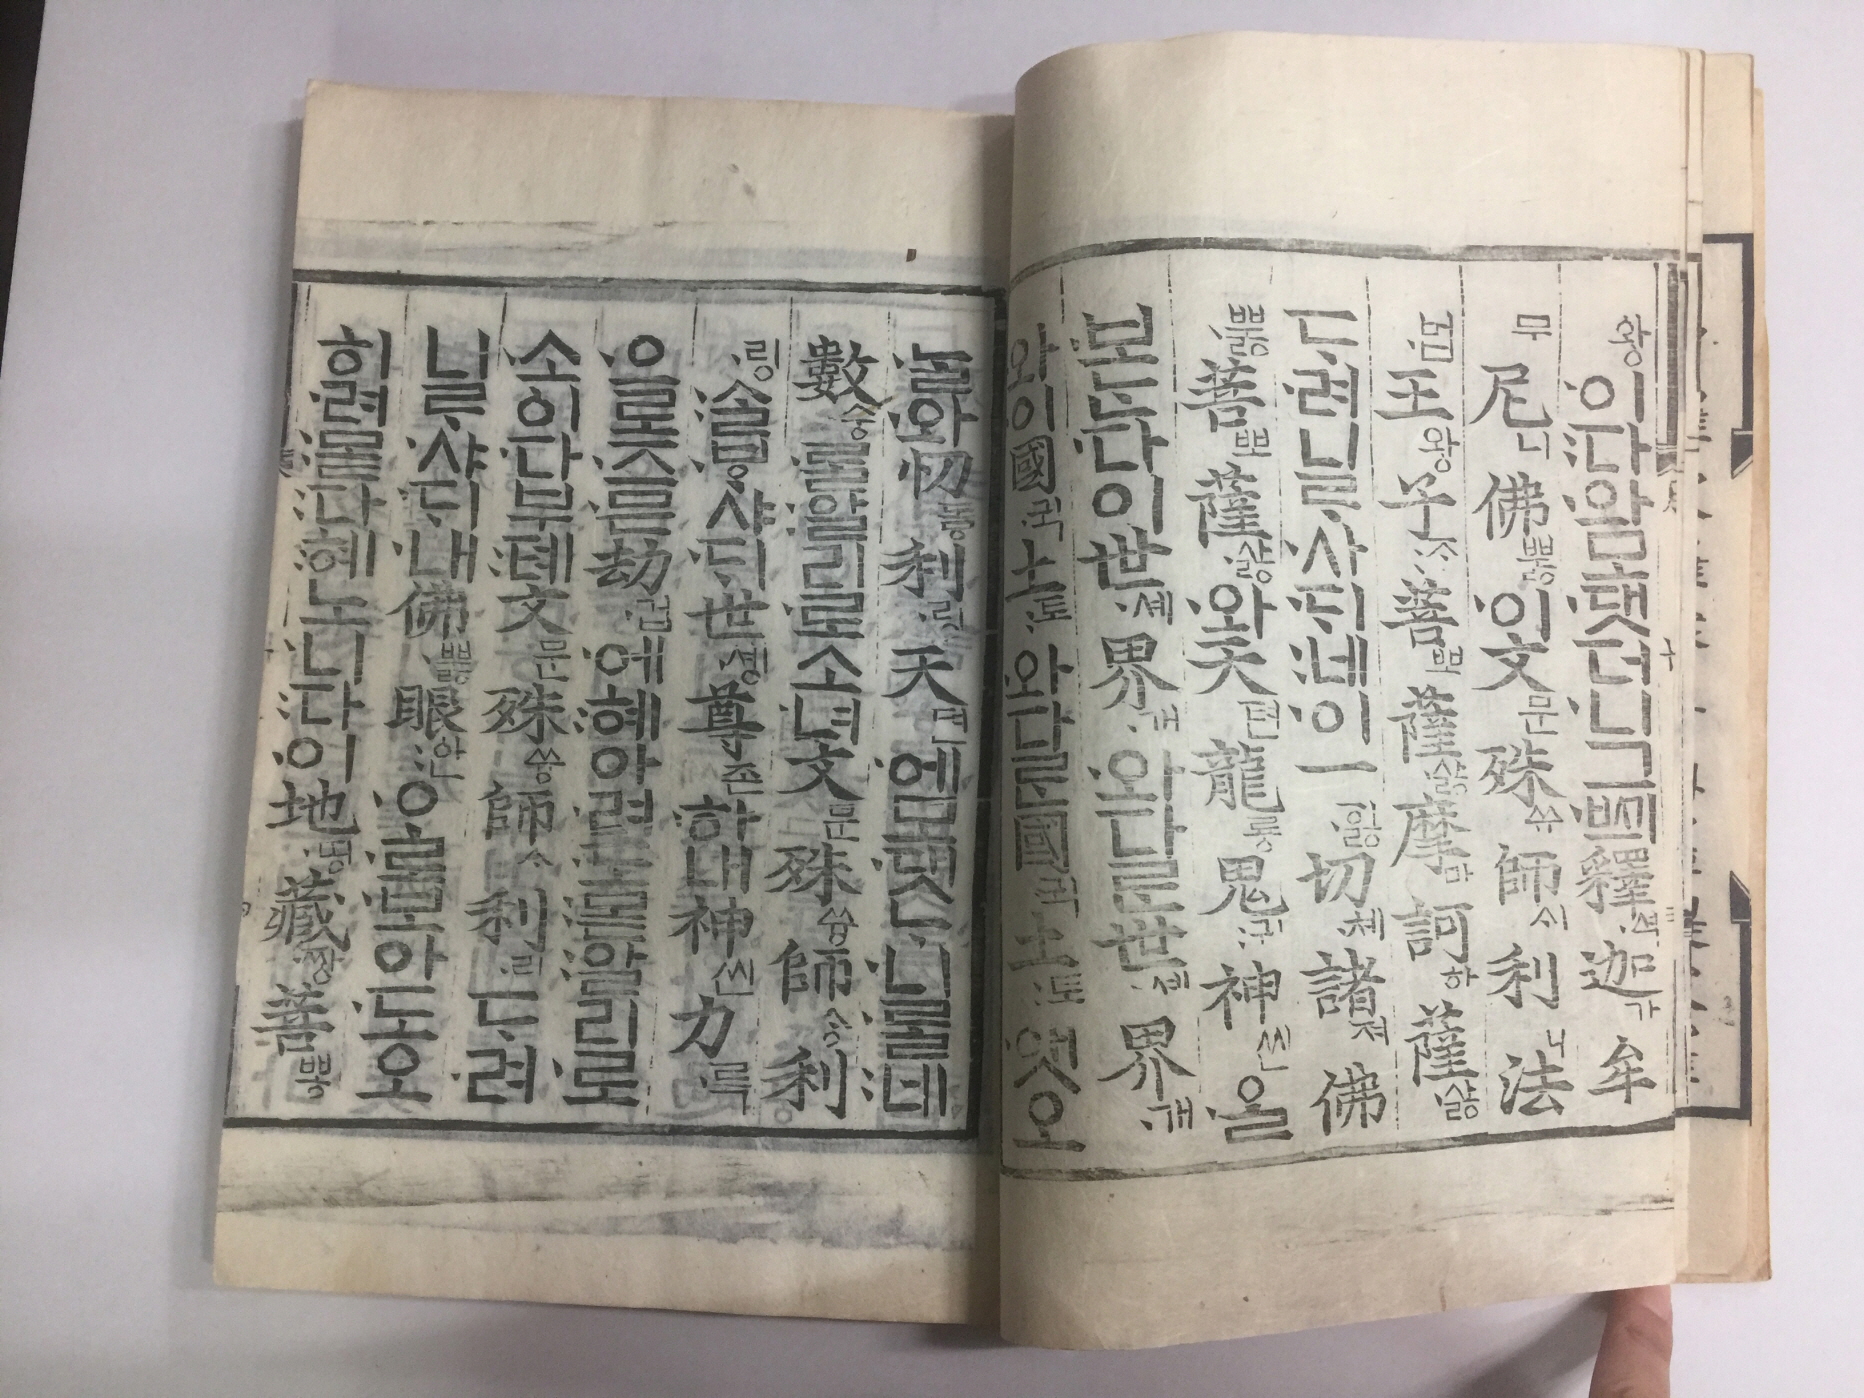 왕이다와모댓더니그ᄢᅴ釋셕迦가牟
무尼니佛뿌ᇙ이文문殊쓔師시利니法
법王왕子ᄌᆞ菩뽀薩사ᇙ摩마訶하薩사ᇙ
ᄃᆞ려니ᄅᆞ샤ᄃᆡ네이一ᅙᅵᇙ切체諸져佛
뿌ᇙ菩뽀薩사ᇙ와天텬龍룡鬼귀神씬ᄋᆞᆯ
보ᄂᆞᆫ다이世셰界개와다ᄅᆞᆫ世셰界개
와이國귁土토와다ᄅᆞᆫ國귁土토앳오
ᄂᆞᆯ와忉도ᇢ利링天텬에모댓ᄂᆞ니ᄅᆞᆯ네
數숭ᄅᆞᆯ알리로소녀文문殊쓩師ᄉᆞᆼ利
링ᄉᆞᆯᄫᆞ샤ᄃᆡ世솅尊존하내神씬力륵
으로즈믄劫겁에혜아려도몯알리로
소이다부톄文문殊쓩師ᄉᆞ利리ᄃᆞ려
니ᄅᆞ샤ᄃᆡ내佛뿌ᇙ眼안ᄋᆞ로보아도오
히려몯다혜노니다이地띵藏짱菩뽕